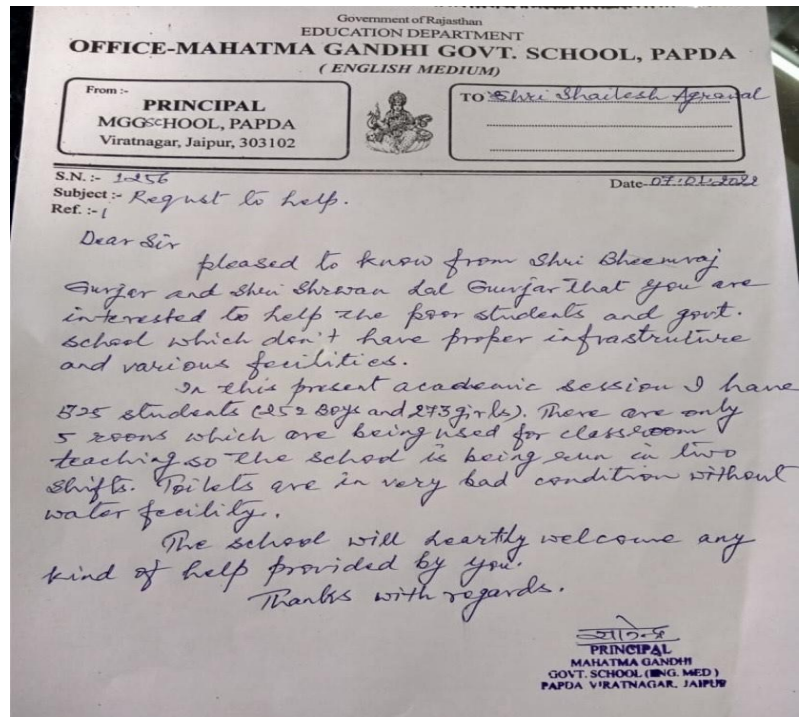 Government of Rajasthan
EDUCATION DEPARTMENT
OFFICE-MAHATMA GANDHI GOVT. SCHOOL, PAPDA
( ENGLISH MEDIUM)
From :-
PRINCIPAL
MGGSCHOOL, PAPDA
Viratnagar, Jaipur, 303102
TO Shri Shailesh Agrawal
S.N. :- 1256
Date- 07.01.2022
Subject :- Requst to help.
Ref. :-
Dear Sir
pleased to know from Shri Bheemraj
Gurjar and Shri Shrwan Lal Gurjar that you are
interested to help the poor students and govt.
school which don't have proper infrastruture
and various facilities.
In this present academic session I have
525 students (252 Boys and 273 girls). There are only
5 rooms which are being used for classroom
teaching so the school is being run in two
shifts. Toilets are in very bad condition without
water facility.
The school will heartily welcome any
kind of help provided by you.
Thanks with regards.
PRINCIPAL
MAHATMA GANDHI
GOVT. SCHOOL (ENG. MED)
PAPDA VIRATNAGAR, JAIPUR